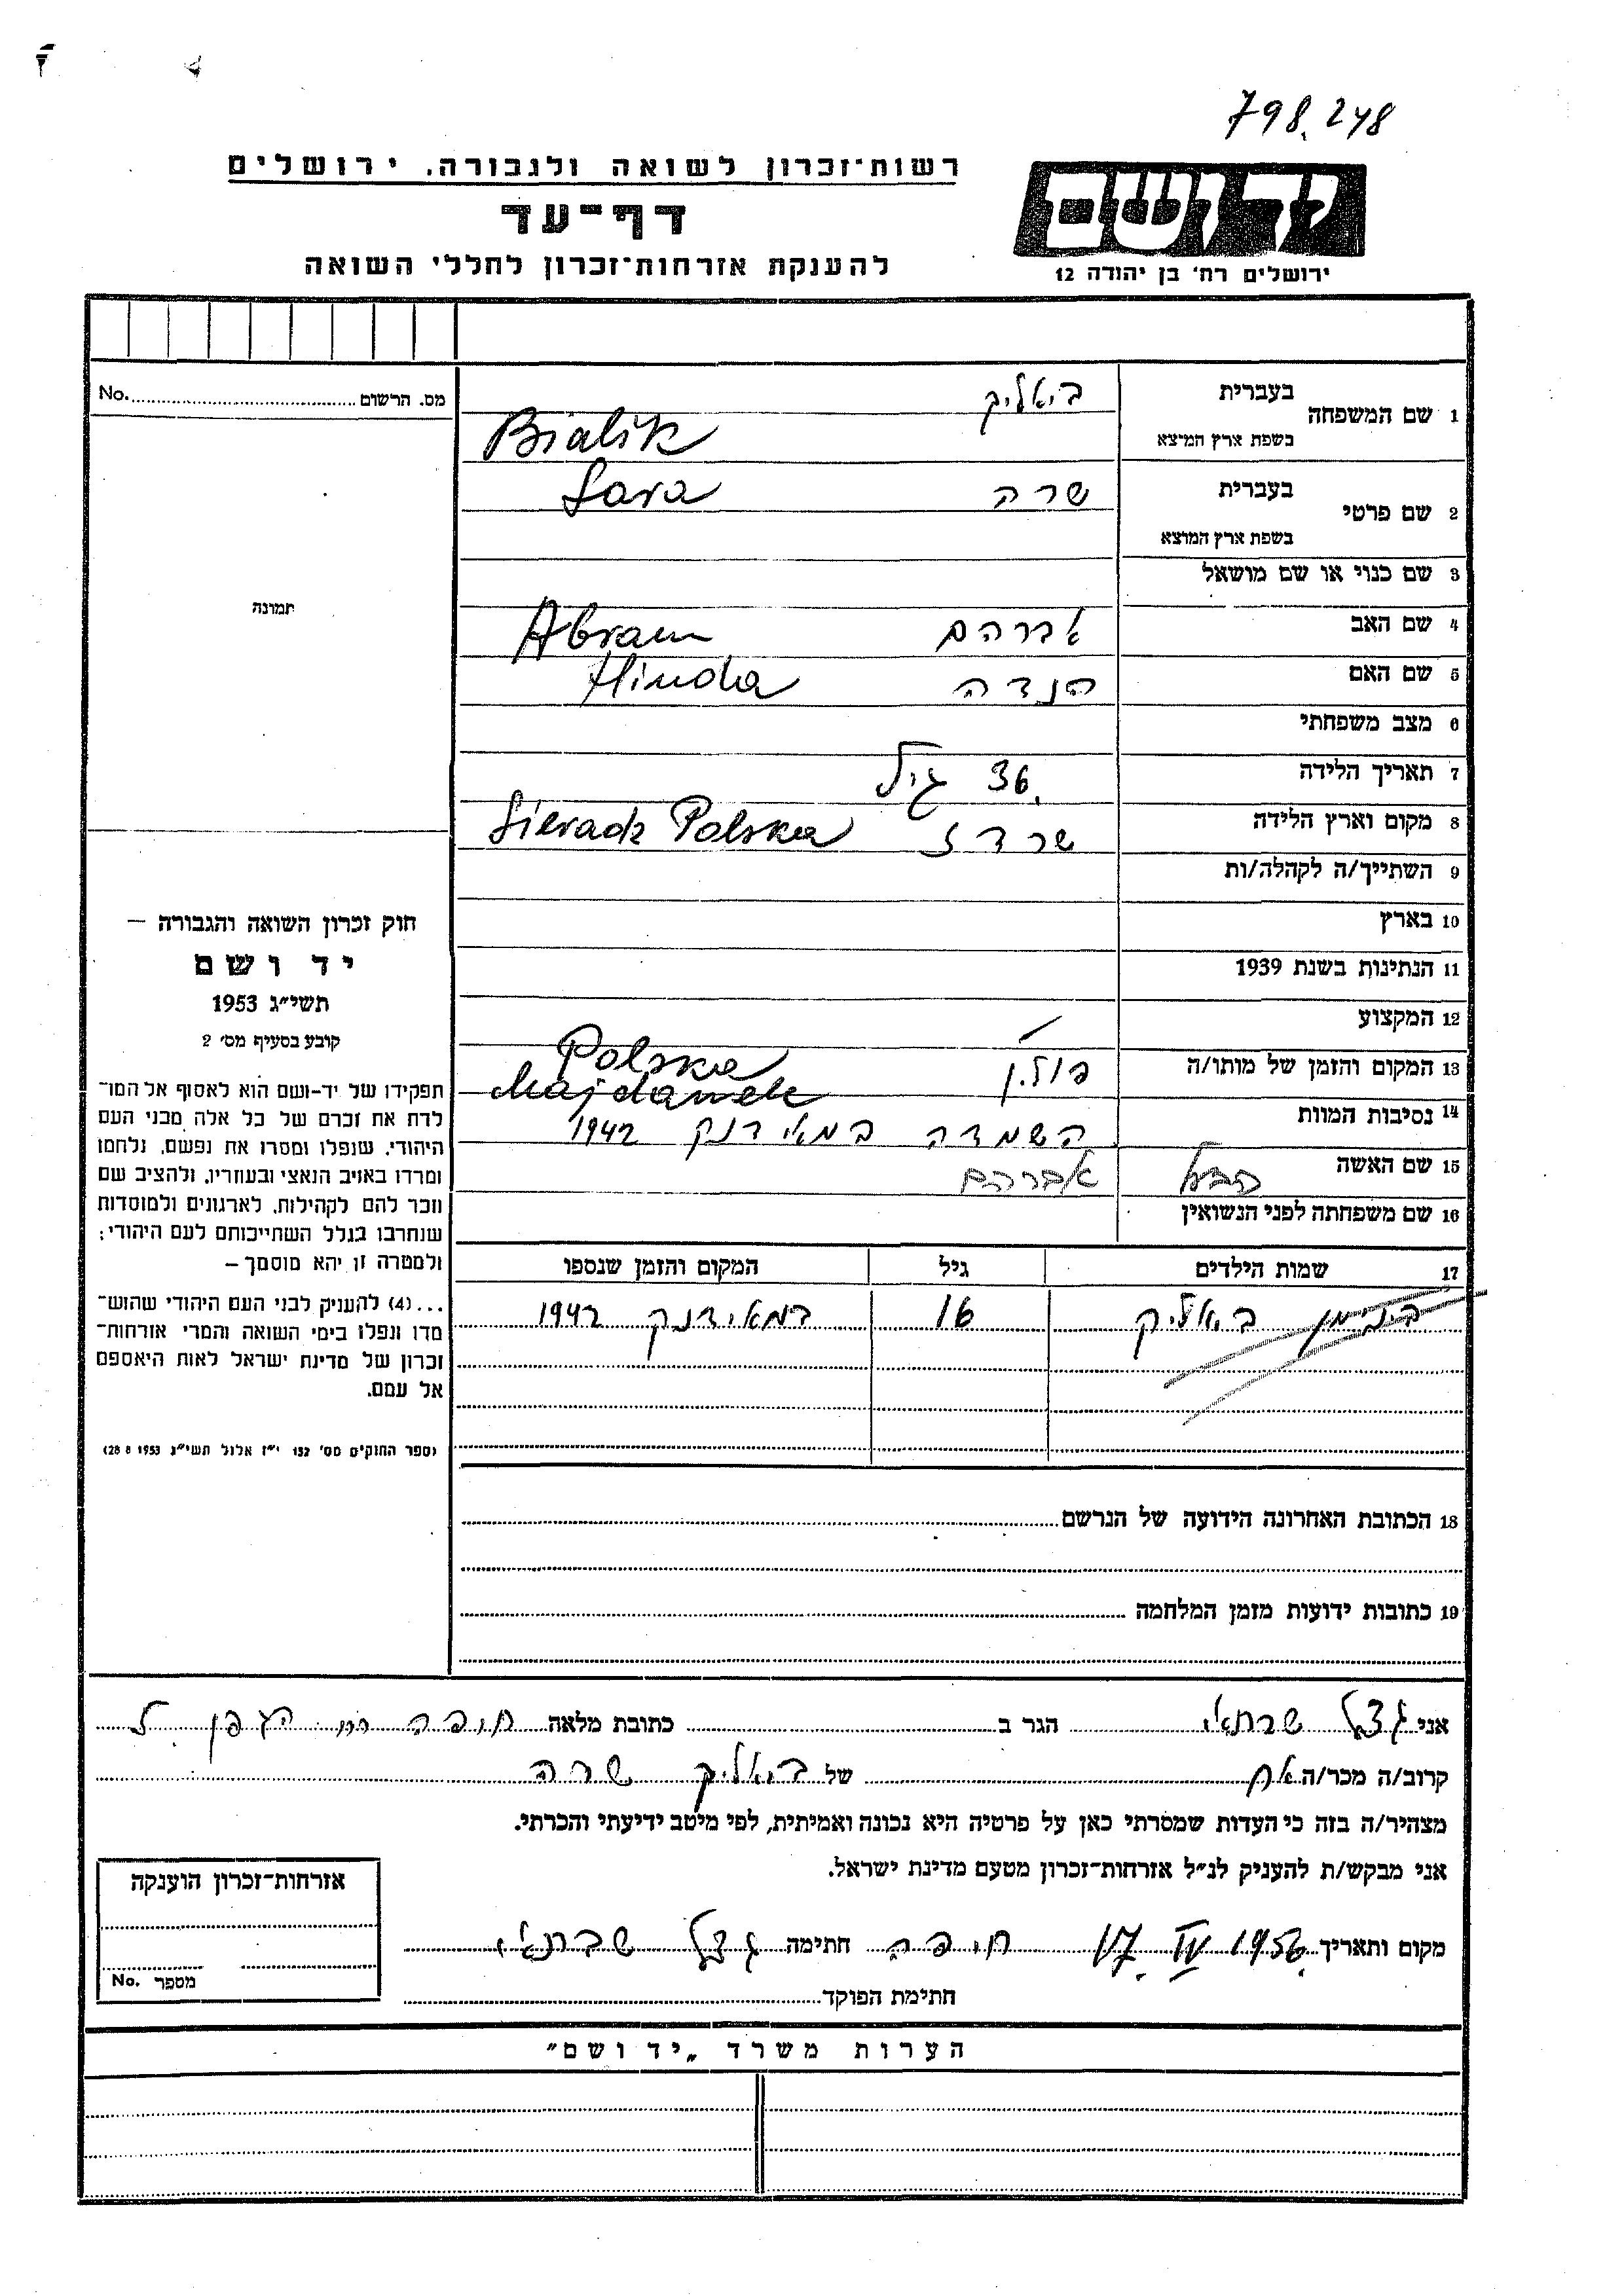 798.248
רשות-זכרון לשואה ולגבורה. ירושלים
דף-עד
להענקת אזרחות-זכרון לחללי השואה
יד ושם
ירושלים רח' בן יהודה 12
מס. הרשום No.
תמונה
1 שם המשפחה בעברית ביאליק
בשפת ארץ המוצא Bialik
2 שם פרטי בעברית שרה Sara
בשפת ארץ המוצא
3 שם כנוי או שם מושאל
4 שם האב אברהם Abram
5 שם האם הנדה Hinda
6 מצב משפחתי
7 תאריך הלידה 36 גיל
8 מקום וארץ הלידה שרדז Sieradz Polska
9 השתייך/ה לקהלה/ות
10 בארץ
11 הנתינות בשנת 1939
12 המקצוע
13 המקום והזמן של מותו/ה פולין Polska
Majdanek
14 נסיבות המוות השמדה במאידנק 1942
15 שם האשה הבעל אברהם
16 שם משפחתה לפני הנשואין
17 שמות הילדים גיל המקום והזמן שנספו
בנימן ביאליק 16 במאידנק 1942
חוק זכרון השואה והגבורה –
יד ושם
תשי"ג 1953
קובע בסעיף מס' 2
תפקידו של יד-ושם הוא לאסוף אל המו־
לדת את זכרם של כל אלה מבני העם
היהודי, שנפלו ומסרו את נפשם, נלחמו
ומרדו באויב הנאצי ובעוזריו, ולהציב שם
וזכר להם לקהילות, לארגונים ולמוסדות
שנחרבו בגלל השתייכותם לעם היהודי;
ולמטרה זו יהא מוסמך –
...(4) להעניק לבני העם היהודי שהוש־
מדו ונפלו בימי השואה והמרי אזרחות־
זכרון של מדינת ישראל לאות היאספם
אל עמם.
(ספר החוקים מס' 132 י"ז אלול תשי"ג 28.8.1953)
18 הכתובת האחרונה הידועה של הנרשם
19 כתובות ידועות מזמן המלחמה
אני גצל שבתאי הגר ב כתובת מלאה חיפה
קרוב/ה מכר/ה אח של ביאליק שרה
מצהיר/ה בזה כי העדות שמסרתי כאן על פרטיה היא נכונה ואמיתית, לפי מיטב ידיעתי והכרתי.
אני מבקש/ת להעניק לנ"ל אזרחות-זכרון מטעם מדינת ישראל.
מקום ותאריך 17. IV 1956 חיפה חתימה גצל שבתאי
חתימת הפוקד
אזרחות-זכרון הוענקה
מספר No.
הערות משרד „יד ושם"